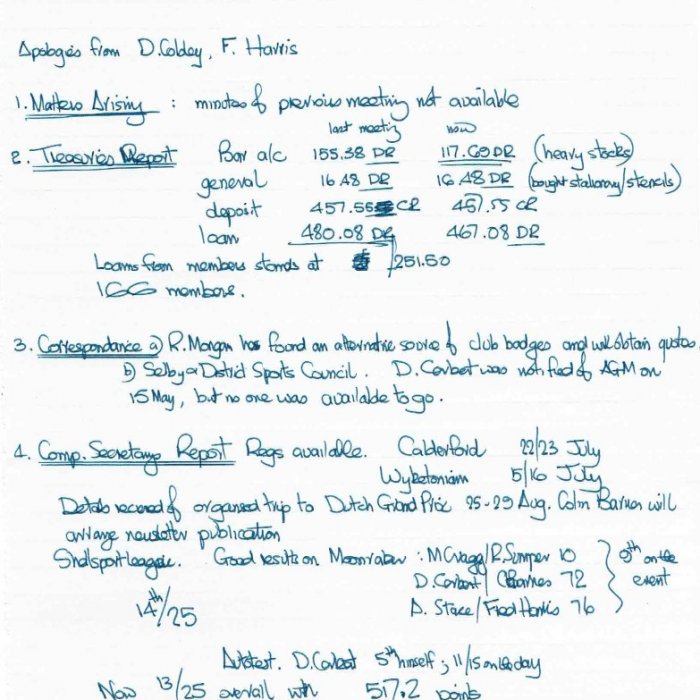 Apologies from D. Coldey, F. Harris
1. Matters Arising : minutes of previous meeting not available
last meeting now
2. Treasuries Report Bar a/c 155.38 DR 117.60 DR (heavy stocks)
general 16.48 DR 16.48 DR (bought stationary/stencils)
deposit 457.55 CR 457.55 CR
loan 480.08 DR 467.08 DR
Loans from members stands at 251.50
166 members.
3. Correspondance a) R. Morgan has found an alternative source of club badges and will obtain quotes.
b) Selby & District Sports Council. D. Corbet was notified of AGM on
15 May, but no one was available to go.
4. Comp. Secretarys Report Regs available. Calderford 22/23 July
Wyketonian 5/16 July
Details received of organised trip to Dutch Grand Prix 25-29 Aug. Colin Barnes will
arrange newsletter publication
Shellsport league. Good results on Moonraker : M Cragg/R. Sumper 10
D. Corbet/C Barnes 72
A. Stace/Fred Harris 76
9th on the
event
14th/25
Autotest. D. Corbet 5th himself ; 11/15 on the day
Now 13/25 overall with 517.2 points